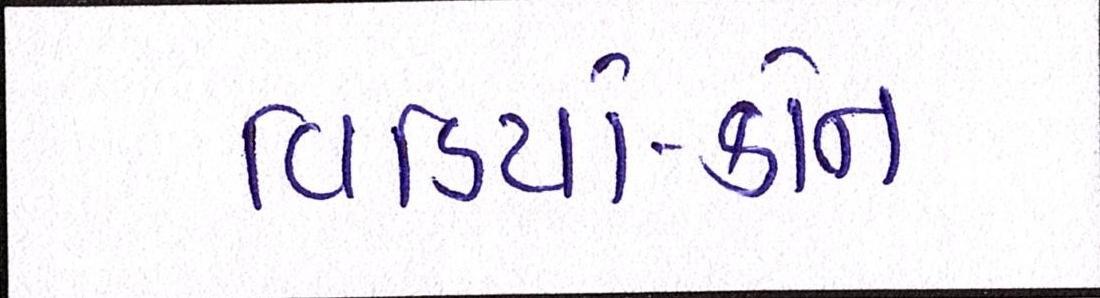 વિડિયો-કોન